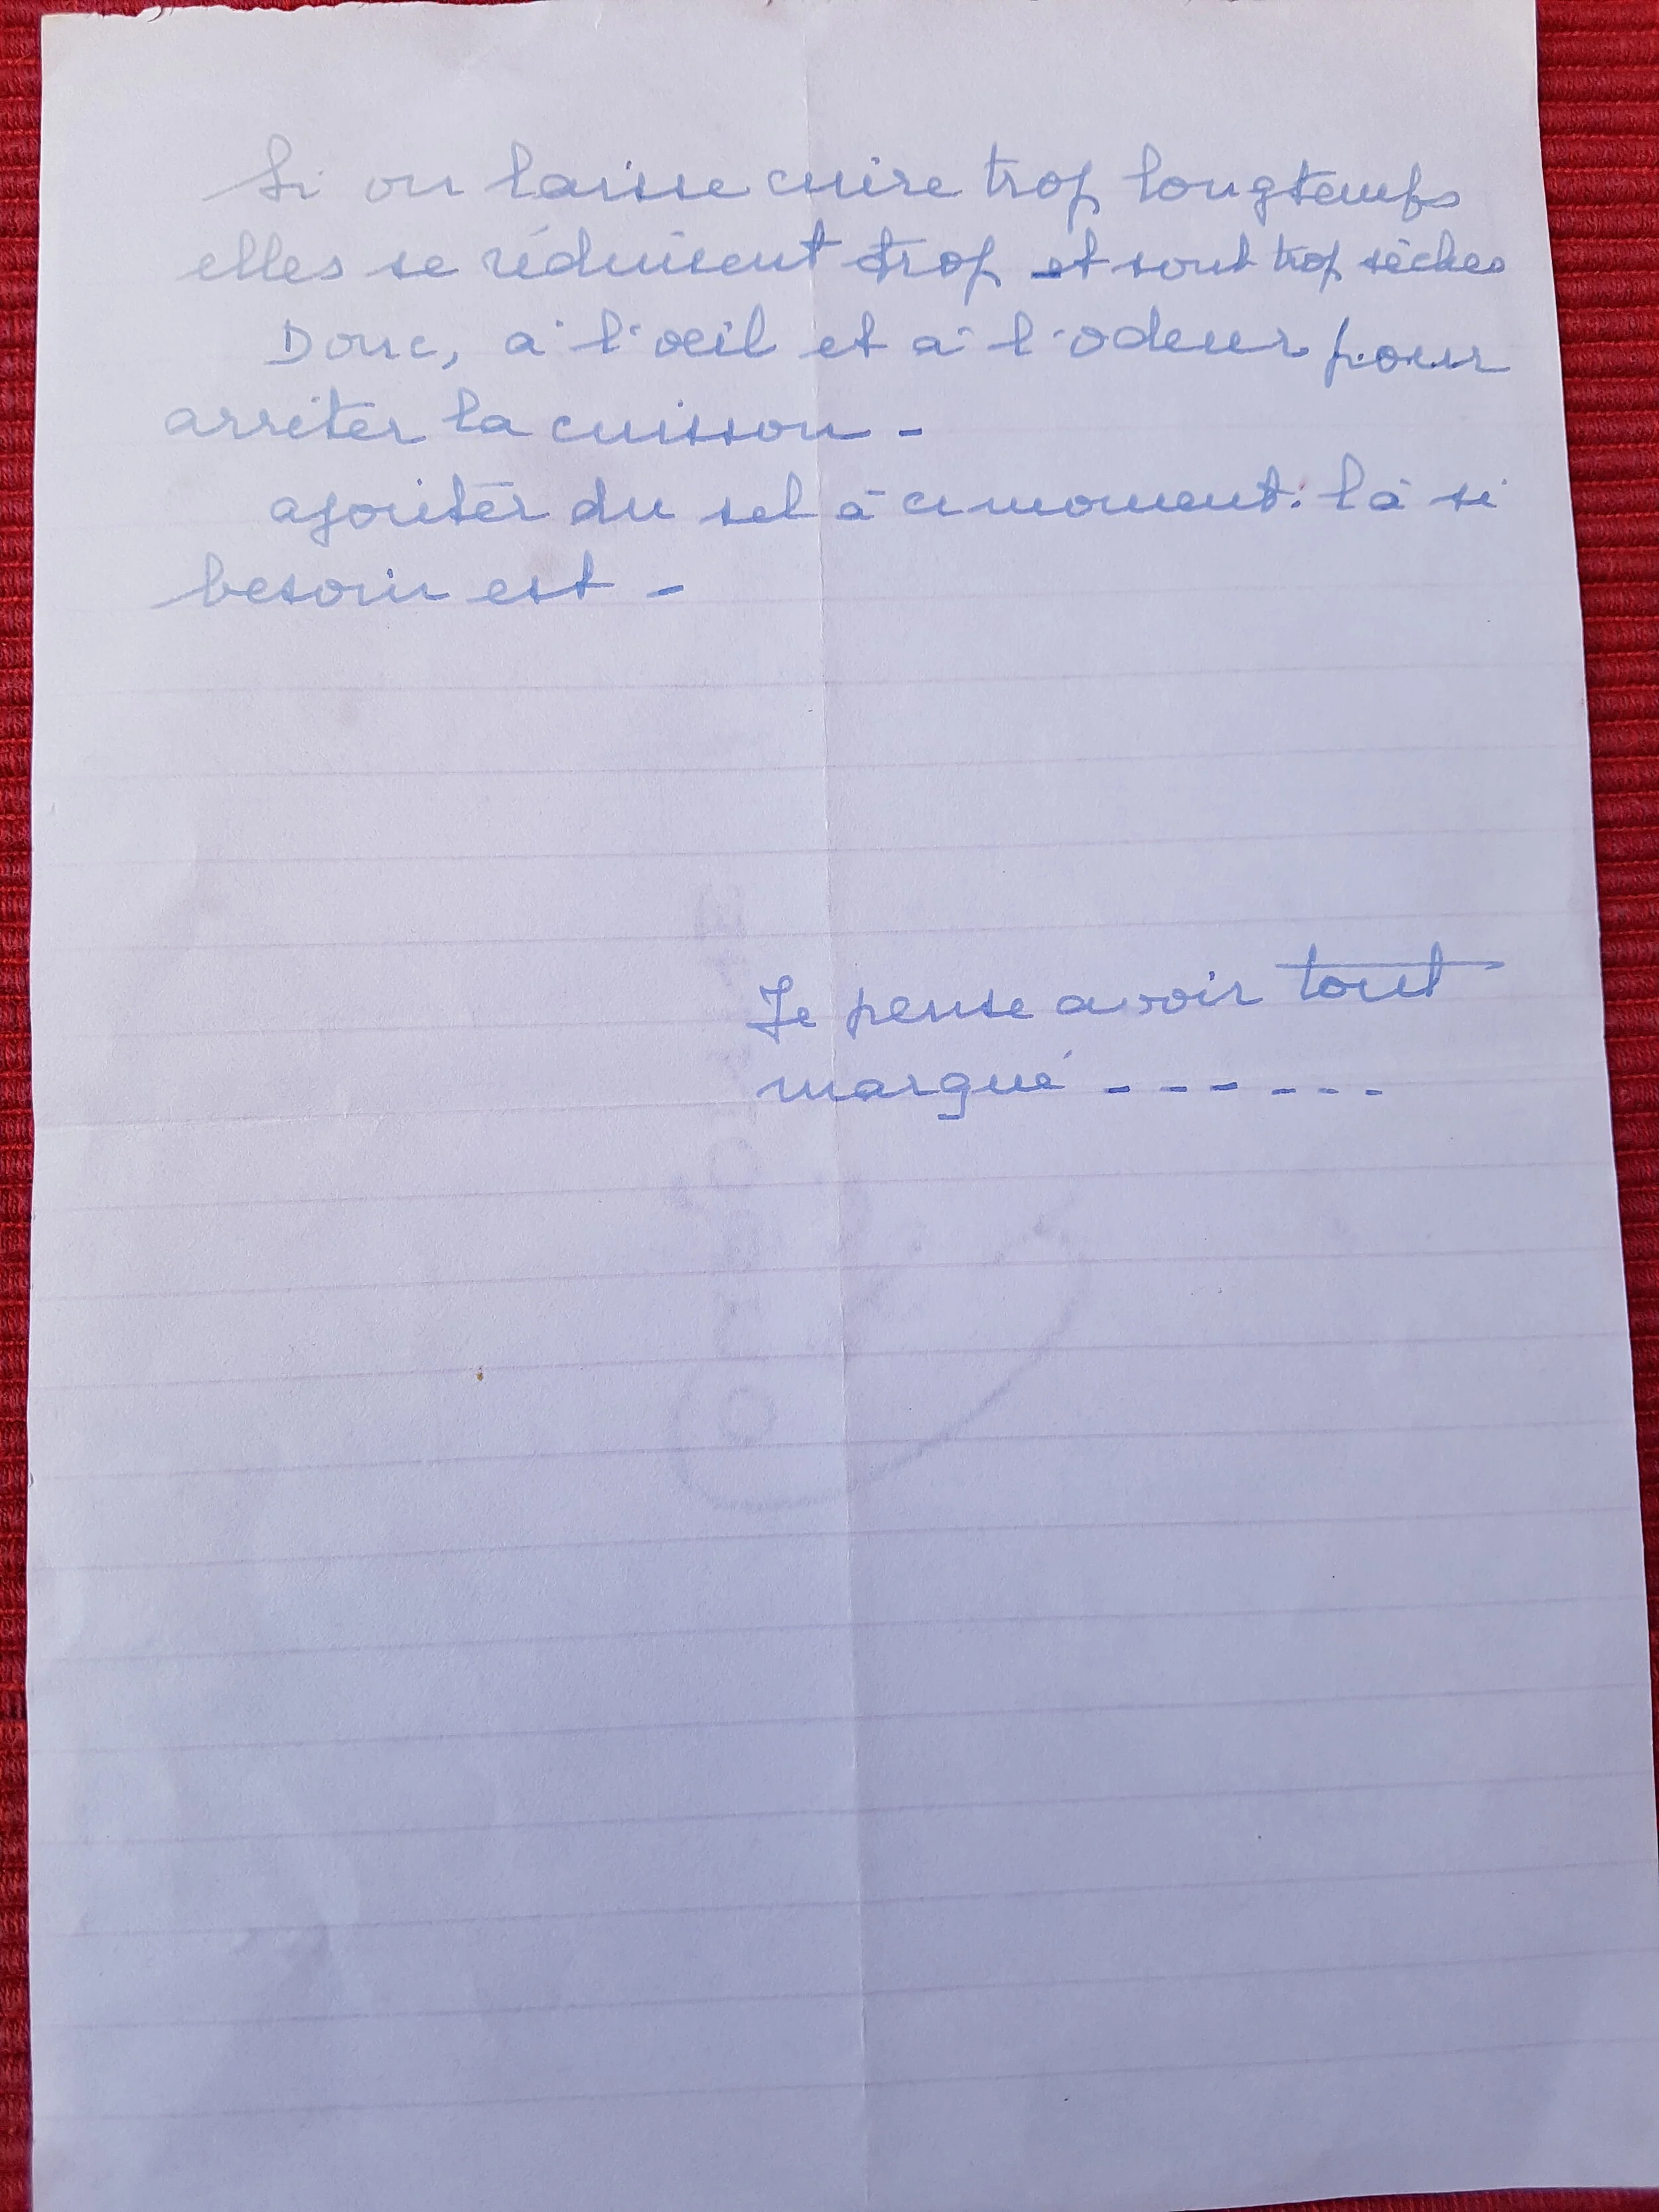 Si on laisse cuire trop longtemps
elles se réduisent trop et sont trop sèches
Donc, à l'oeil et à l'odeur pour
arrêter la cuisson -
ajouter du sel à ce moment. là si
besoin est -
Je pense avoir tout
marqué - - - - - -